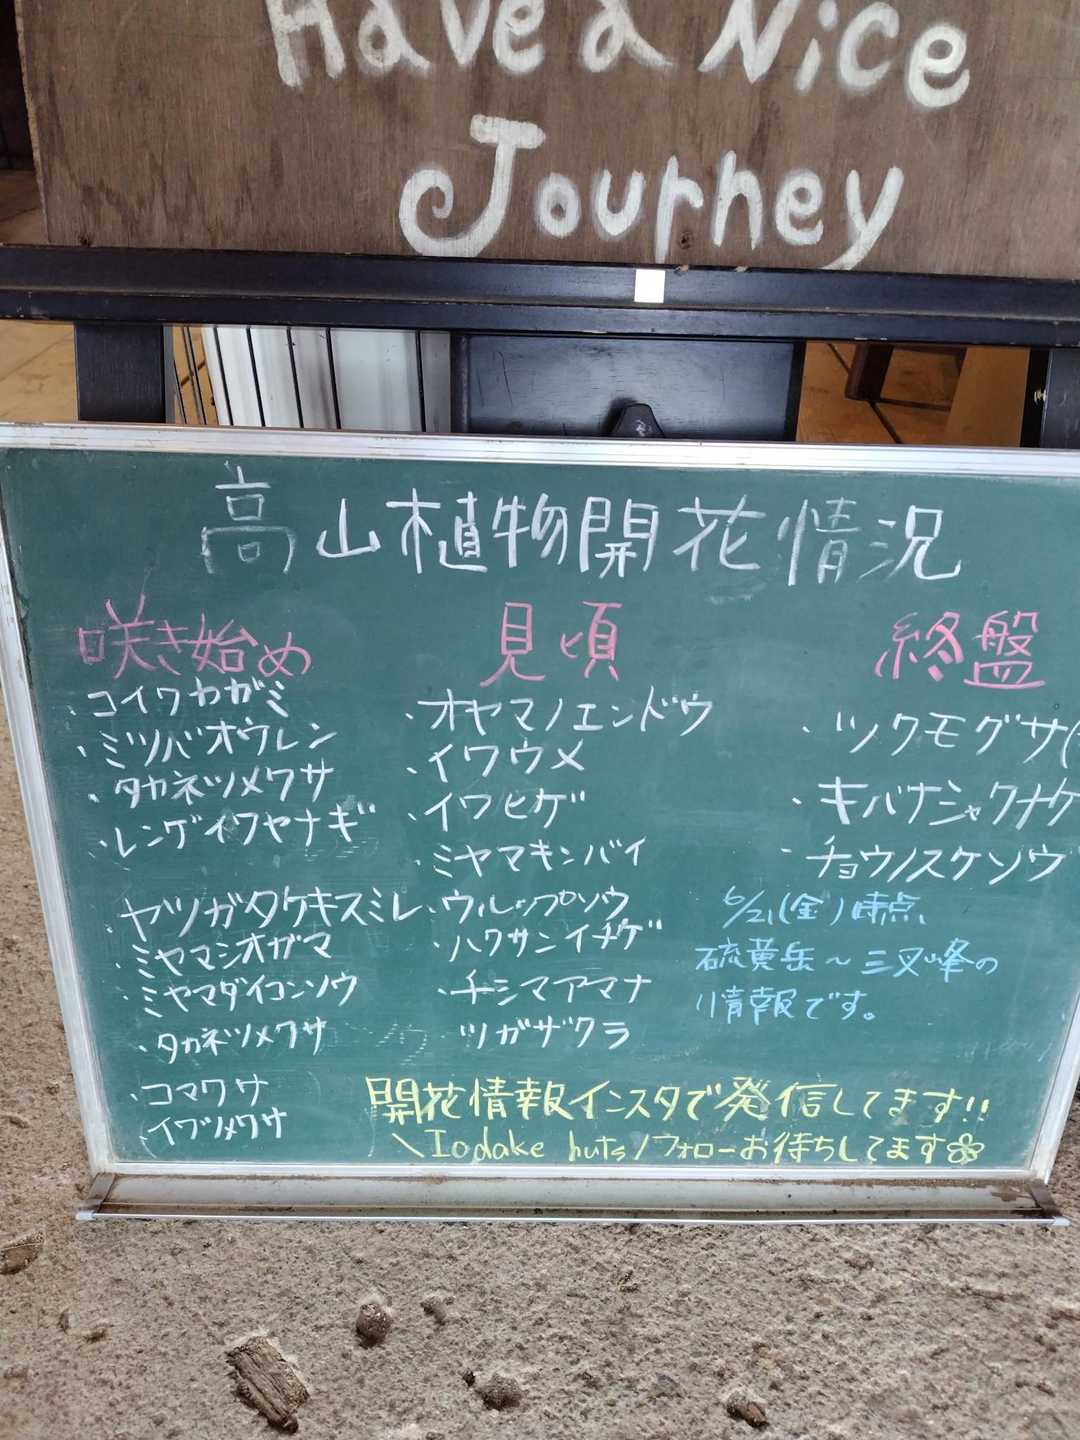 Have a Nice
Journey
高山植物開花情況
咲き始め
・コイワカガミ
・ミツバオウレン
・タカネツメクサ
・レンゲイワヤナギ
・ヤツガタケキスミレ
・ミヤマシオガマ
・ミヤマダイコンソウ
・タカネツメクサ
・コマクサ
・イワツメクサ
見頃
・オヤマノエンドウ
・イワウメ
・イワヒゲ
・ミヤマキンバイ
・ウルップソウ
・ハクサンイチゲ
・チシマアマナ
ツガザクラ
終盤
・ツクモグサ(
・キバナシャクナゲ
・チョウノスケソウ
6/21(金)時点、
硫黄岳〜三叉峰の
情報です。
開花情報インスタで発信してます!!
\Iodake huts/フォローお待ちしてます